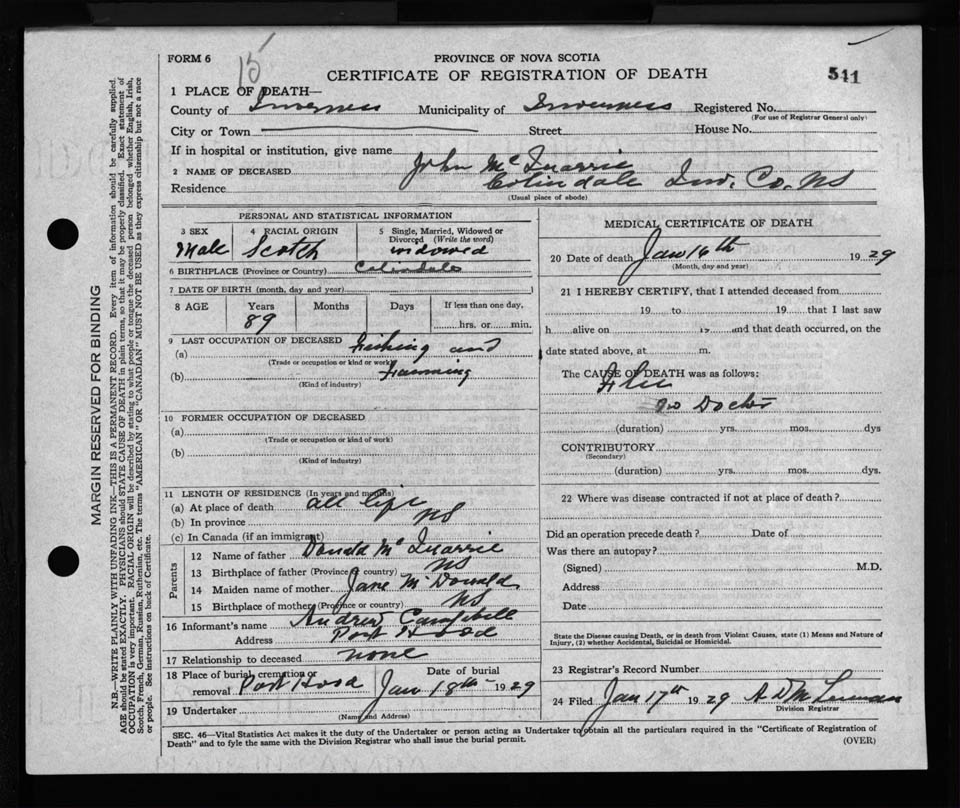 FORM 6
15
PROVINCE OF NOVA SCOTIA
CERTIFICATE OF REGISTRATION OF DEATH
541
1 PLACE OF DEATH—
County of Inverness Municipality of Inverness Registered No.
(For use of Registrar General only)
City or Town Street House No.
If in hospital or institution, give name
2 NAME OF DECEASED John Mc Quarrie
Residence Colindale Inv. Co. NS
(Usual place of abode)
MARGIN RESERVED FOR BINDING
N.B.—WRITE PLAINLY WITH UNFADING INK—THIS IS A PERMANENT RECORD. Every item of information should be carefully supplied.
AGE should be stated EXACTLY. PHYSICIANS should STATE CAUSE OF DEATH in plain terms, so that it may be properly classified. Exact statement of
OCCUPATION is very important. RACIAL ORIGIN will be described by stating to what people or tongue the deceased person belonged whether English, Irish,
Scotch, French, German, Russian, Ruthenian, etc. The terms "AMERICAN" OR "CANADIAN" MUST NOT BE USED as they express citizenship but not a race
or people. See instructions on back of Certificate.
PERSONAL AND STATISTICAL INFORMATION
3 SEX 4 RACIAL ORIGIN 5 Single, Married, Widowed or
Divorced (Write the word)
Male Scotch widowed
6 BIRTHPLACE (Province or Country) Colindale
7 DATE OF BIRTH (month, day and year)
8 AGE Years Months Days If less than one day,
89 hrs. or min.
9 LAST OCCUPATION OF DECEASED Fishing and
(a)
(Trade or occupation or kind or work)
(b) Farming
(Kind of industry)
10 FORMER OCCUPATION OF DECEASED
(a)
(Trade or occupation or kind of work)
(b)
(Kind of industry)
11 LENGTH OF RESIDENCE (In years and months)
(a) At place of death all life
(b) In province NS
(c) In Canada (if an immigrant)
Parents
12 Name of father Donald Mc Quarrie
13 Birthplace of father (Province or country) NS
14 Maiden name of mother Jane McDonald
15 Birthplace of mother (Province or country) NS
16 Informant's name Andrew Campbell
Address Port Hood
17 Relationship to deceased none
18 Place of burial, cremation or Date of burial
removal Port Hood Jan 18th 1929
19 Undertaker
(Name and Address)
MEDICAL CERTIFICATE OF DEATH
20 Date of death Jan 16th 1929
(Month, day and year)
21 I HEREBY CERTIFY, that I attended deceased from
19 to 19 that I last saw
h alive on 19 and that death occurred, on the
date stated above, at m.
The CAUSE OF DEATH was as follows:
Flu
No Doctor
(duration) yrs. mos. dys
CONTRIBUTORY
(Secondary)
(duration) yrs. mos. dys.
22 Where was disease contracted if not at place of death?
Did an operation precede death? Date of
Was there an autopay?
(Signed) M.D.
Address
Date
State the Disease causing Death, or in death from Violent Causes, state (1) Means and Nature of
Injury, (2) whether Accidental, Suicidal or Homicidal.
23 Registrar's Record Number
24 Filed Jan 17th 1929
Division Registrar
SEC. 46—Vital Statistics Act makes it the duty of the Undertaker or person acting as Undertaker to obtain all the particulars required in the "Certificate of Registration of
Death" and to fyle the same with the Division Registrar who shall issue the burial permit.
(OVER)